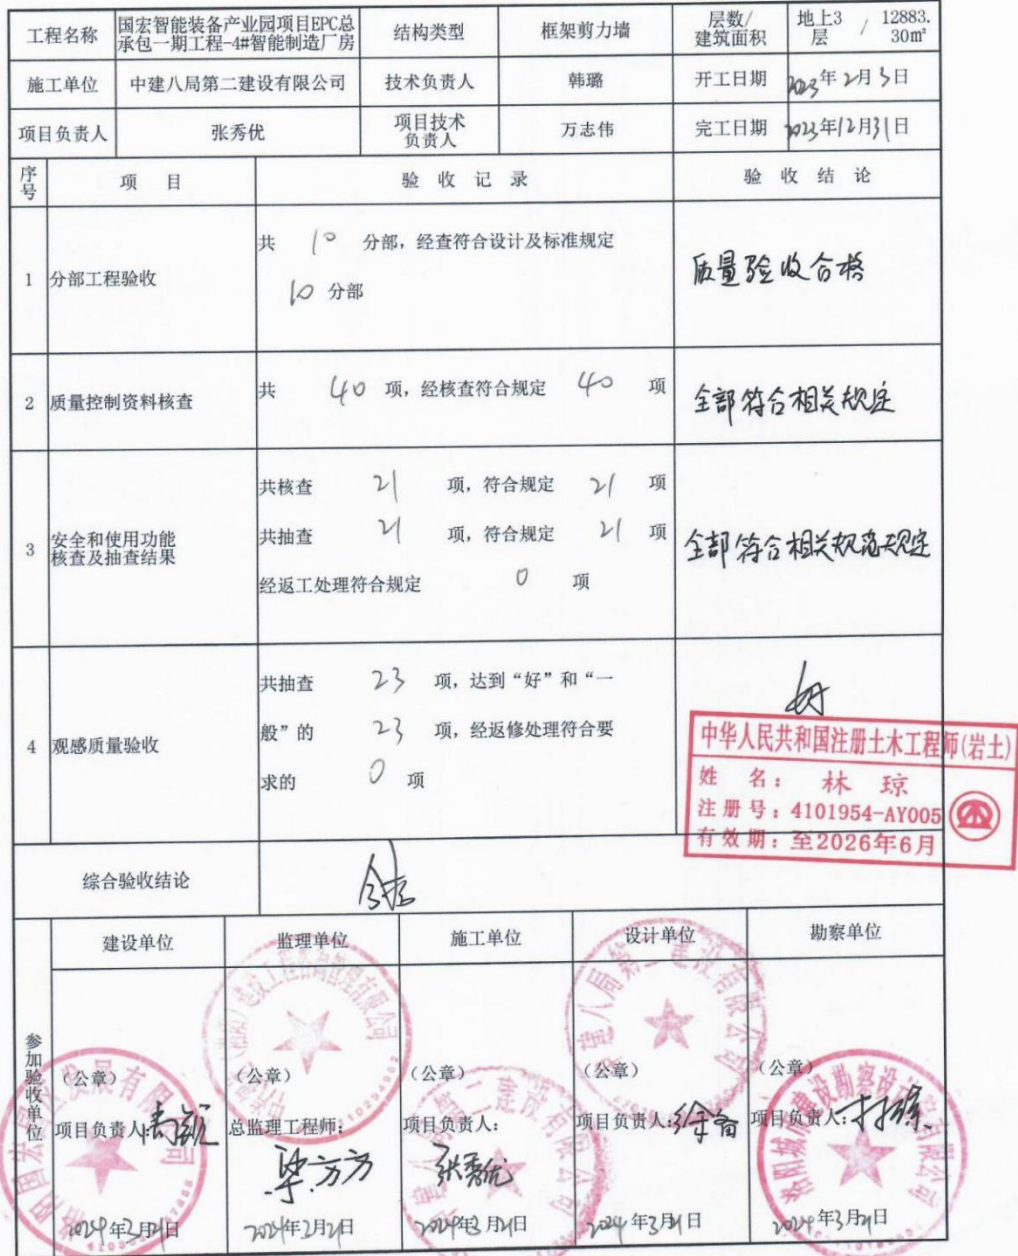 工程名称 国宏智能装备产业园项目EPC总承包一期工程-4#智能制造厂房 结构类型 框架剪力墙 层数/建筑面积 地上3层 / 12883.30㎡
施工单位 中建八局第二建设有限公司 技术负责人 韩璐 开工日期 2023年2月3日
项目负责人 张秀优 项目技术负责人 万志伟 完工日期 2023年12月31日
序号 项 目 验 收 记 录 验 收 结 论
1 分部工程验收
共 10 分部，经查符合设计及标准规定
10 分部
质量验收合格
2 质量控制资料核查 共 40 项，经核查符合规定 40 项 全部符合相关规定
3 安全和使用功能核查及抽查结果
共核查 21 项，符合规定 21 项
共抽查 21 项，符合规定 21 项
经返工处理符合规定 0 项
全部符合相关规范规定
4 观感质量验收
共抽查 23 项，达到“好”和“一
般”的 23 项，经返修处理符合要
求的 0 项
好
中华人民共和国注册土木工程师(岩土)
姓 名：林 琼
注册号：4101954-AY005
有效期：至2026年6月
综合验收结论 合格
参加验收单位
建设单位 监理单位 施工单位 设计单位 勘察单位
（公章） （公章） （公章） （公章） （公章）
项目负责人: 总监理工程师: 梁方方 项目负责人: 张秀优 项目负责人: 项目负责人:
2024年3月21日 2024年3月21日 2024年3月21日 2024年3月21日 2024年3月21日